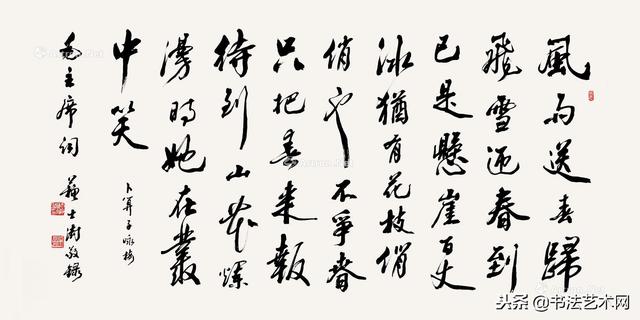 風雨送春歸
飛雪迎春到
已是懸崖百丈
冰猶有花枝俏
俏也不爭春
只把春來報
待到山花爛
漫時她在叢
中笑
卜算子詠梅
毛主席詞 蘇士澍敬錄
头条@书法艺术网